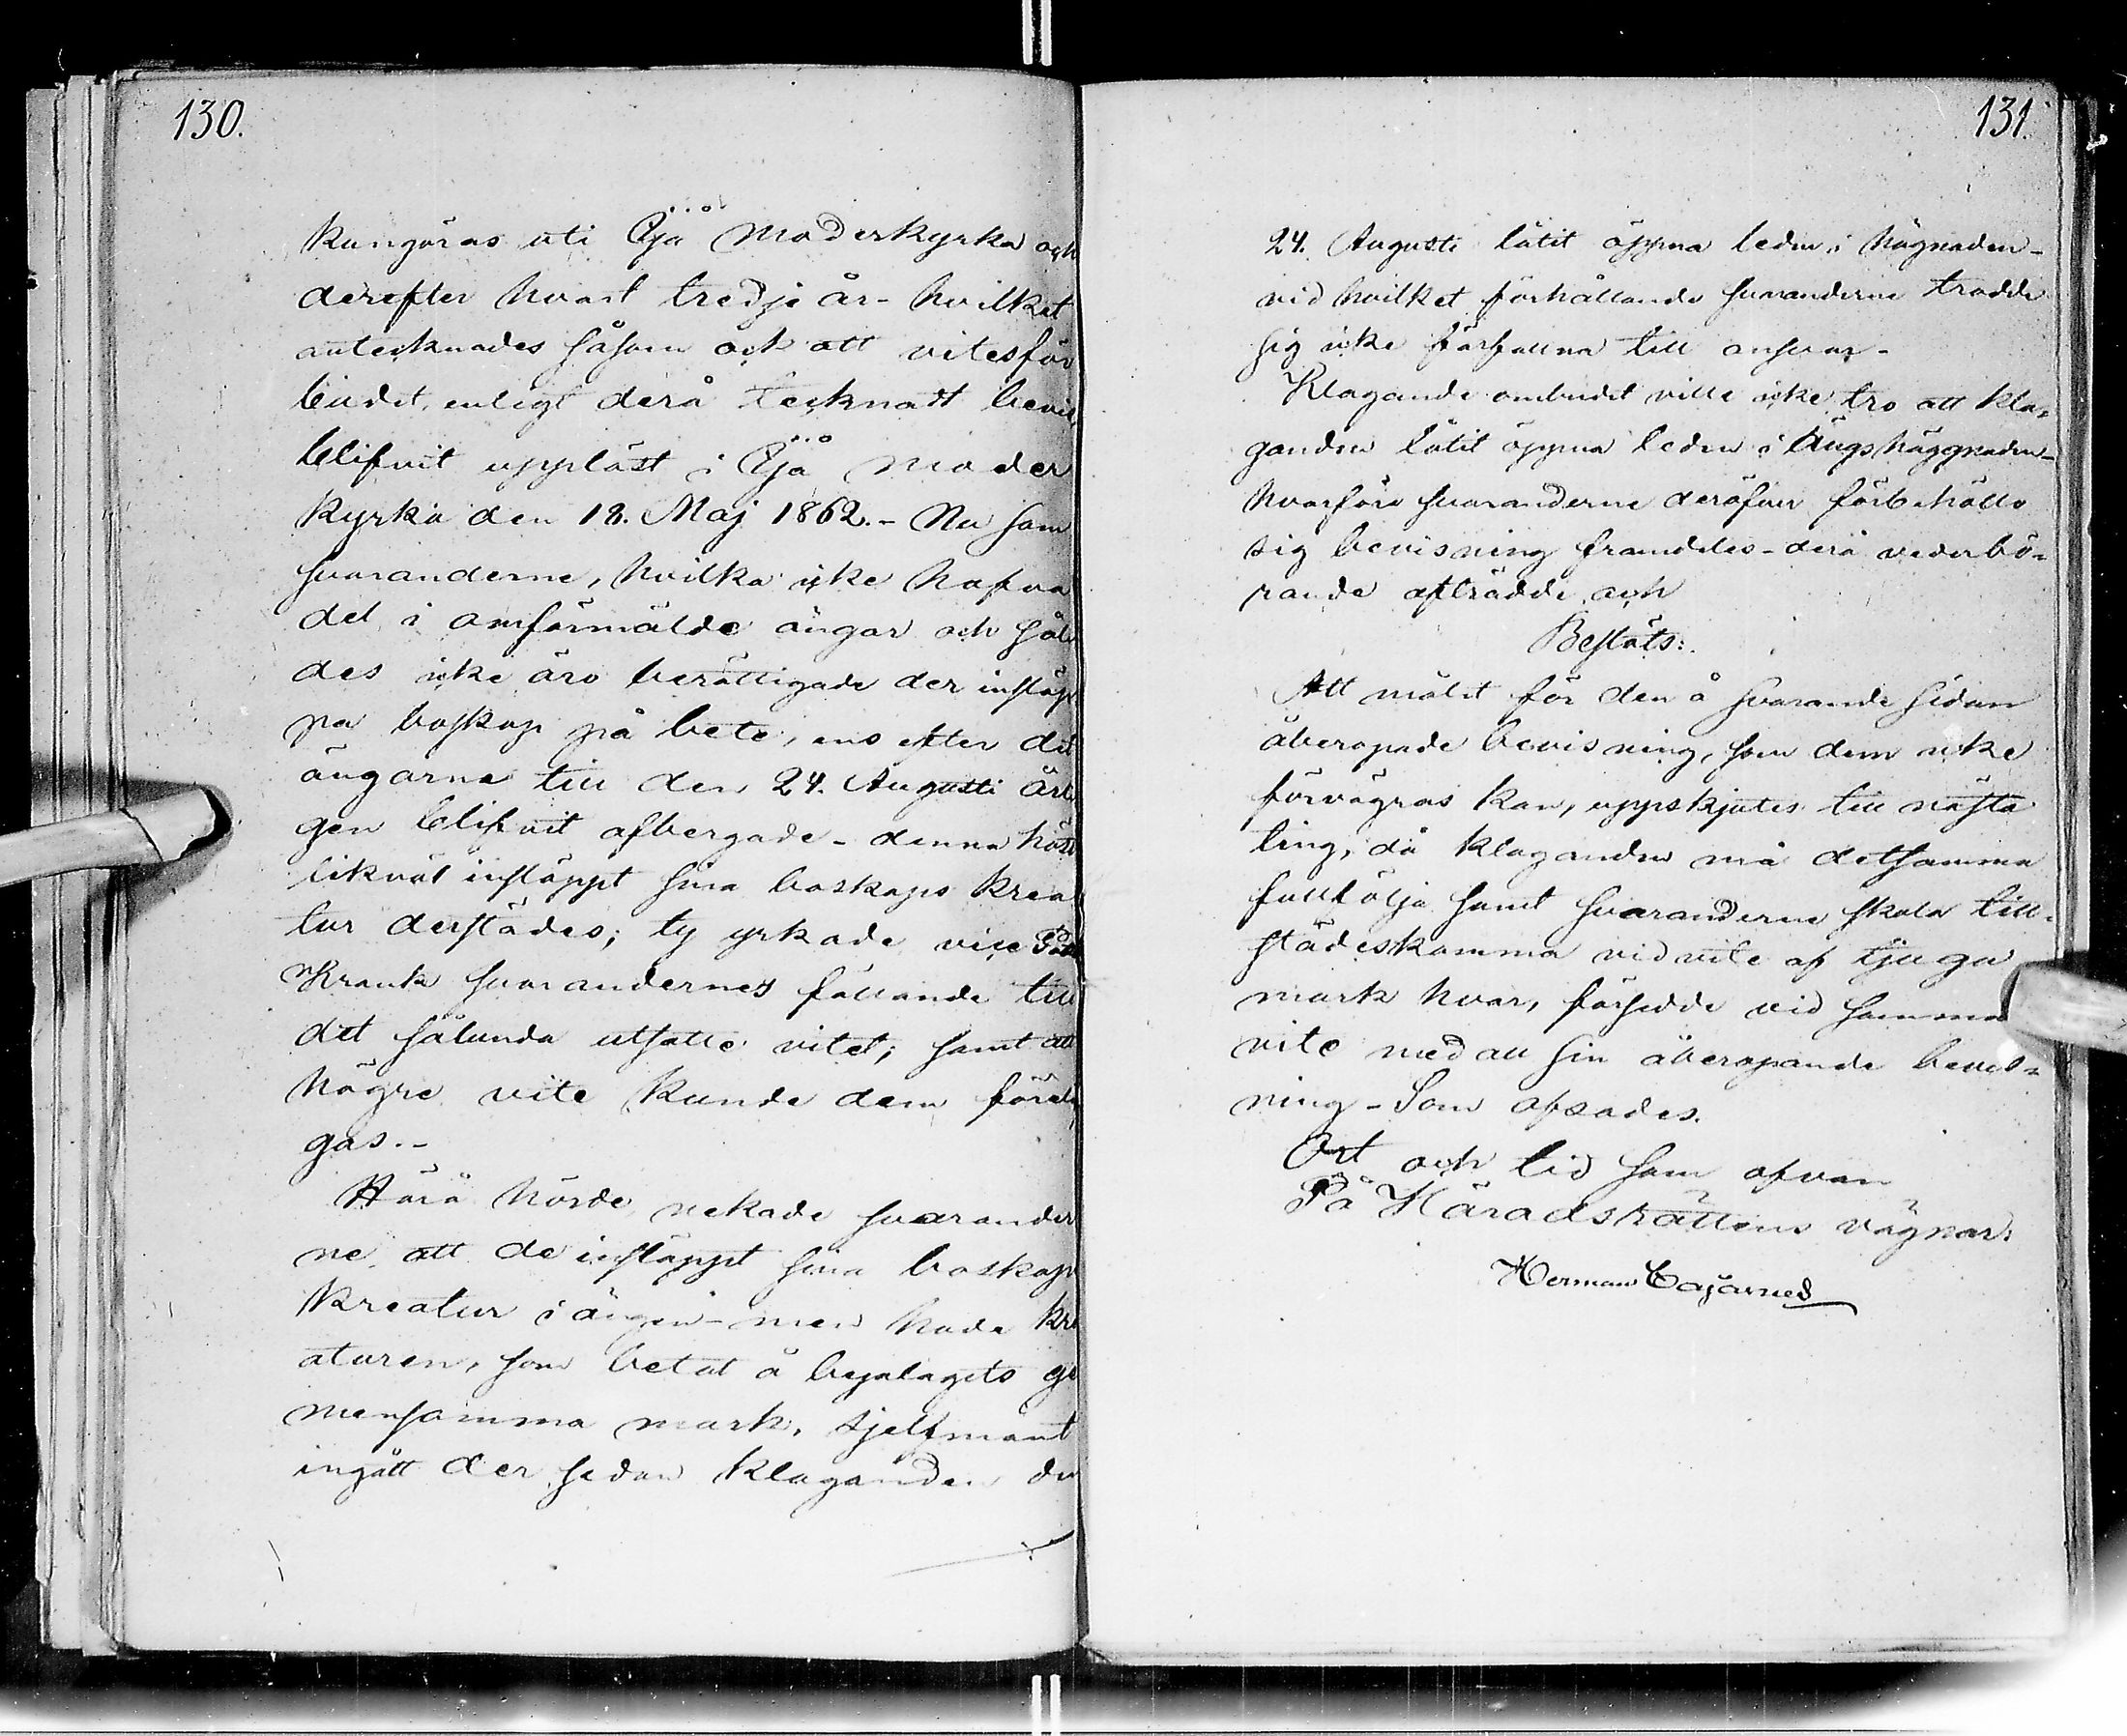 130.
kungöras uti Öja Moderkyrka och
derefter hvart tredje år - hvilket
antecknades såsom ock att vitesför
budet, enligt derå tecknatt bevis,
blifvit uppläst i Öja moder
kyrka den 18. Maj 1862. - Nu som
svaranderne, hvilka icke hafva
del i omförmälde ängar och sål
des icke äro berättigade der insläp
pa boskap på bete, ens efter det
ängarne till den 24. Augusti årl
gen blifvit afbergade - denna höst
likväl insläppt sina boskaps krea
tur derstädes; ty yrkade vice
Krank svarandernes fällande till
det sålunda utsatte vitet; samt att
högre vite kunde dem föreläg
gas. -
Härå hörde, nekade svarander
ne att de insläppt sina boskaps
kreatur i ängen - men hade kre
aturen, som betat å byalagets ge
mensamma mark, sjelfmant
ingått der sedan klaganden den
131.
24. Augusti låtit öppna leden i hägnaden -
vid hvilket förhållande svaranderne trodde
sig icke förfallna till ansvar -
Klagande ombudet ville icke tro att kla=
ganden låtit öppna leden i Ängshäggnaden -
hvarföre svaranderne deröfver förbehöllo
sig bevisning framdeles - derå vederbö=
rande afträdde, och
Beslöts:
Att målet för den å svarande sidan
åberopade bevisning, som dem icke
förvägras kan, uppskjutes till nästa
ting, då klaganden må detsamma
fullfölja samt svaranderne skola till=
städeskomma vid vite af tjugu
mark hvar, försedde vid samma
vite med all sin åberopande bevis=
ning - Som afsades.
Ort och tid som ofvan
På Häradsrättens vägnar:
Herman Cajanus